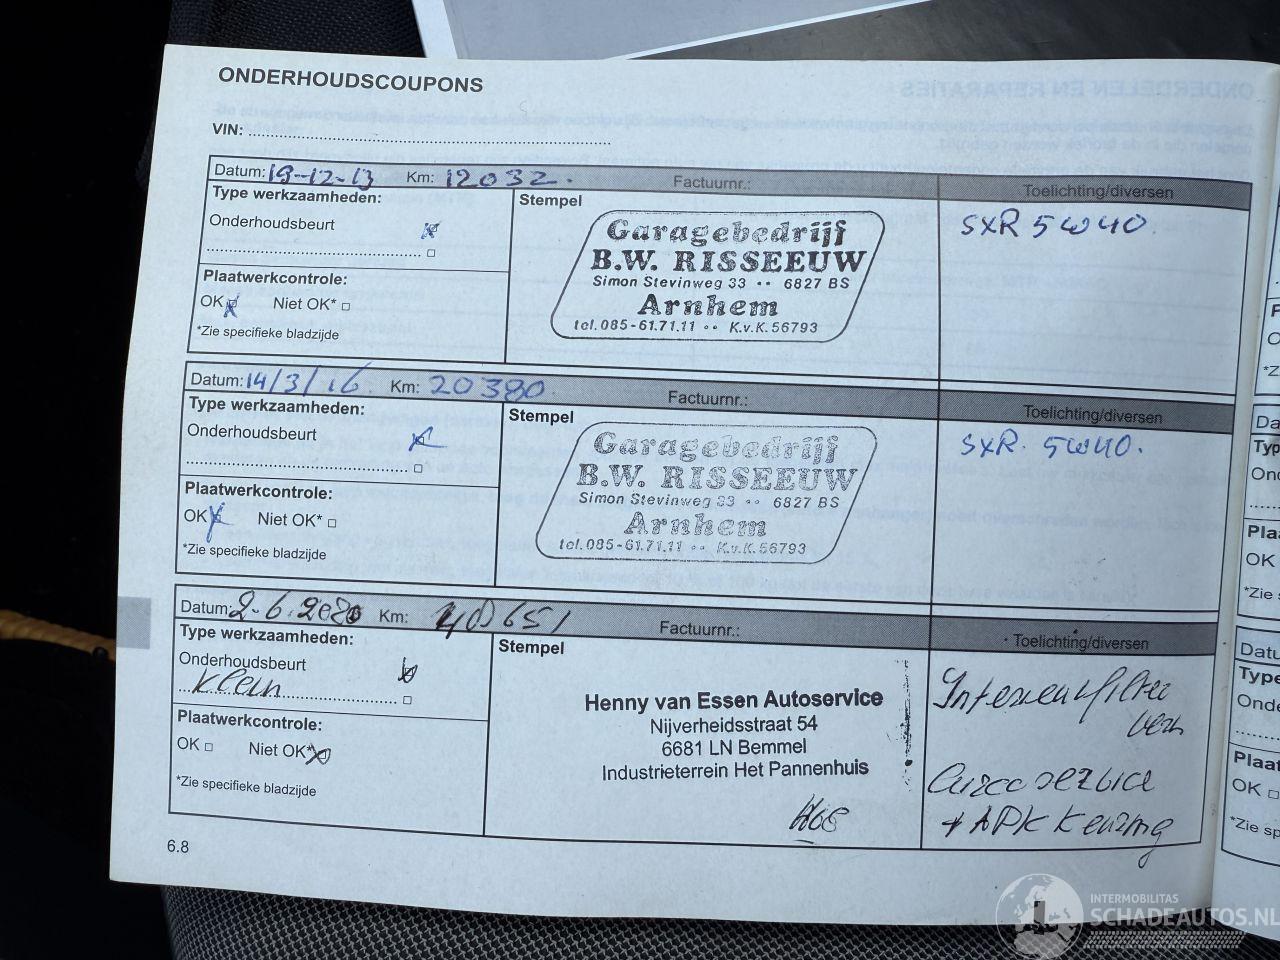 ONDERHOUDSCOUPONS
ONDERDELEN EN REPARATIES
VIN: ........................................................................
Datum: 19-12-13 Km: 12032. Factuurnr.: Toelichting/diversen
Type werkzaamheden:
Onderhoudsbeurt
Plaatwerkcontrole:
OK Niet OK*
*Zie specifieke bladzijde
Stempel
Garagebedrijf
B.W. RISSEEUW
Simon Stevinweg 33 •• 6827 BS
Arnhem
tel. 085-61.71.11 •• K.v.K. 56793
SXR 5W40
Datum: 14/3/16. Km: 20380 Factuurnr.: Toelichting/diversen
Type werkzaamheden:
Onderhoudsbeurt
Plaatwerkcontrole:
OK Niet OK*
*Zie specifieke bladzijde
Stempel
Garagebedrijf
B.W. RISSEEUW
Simon Stevinweg 33 •• 6827 BS
Arnhem
tel. 085-61.71.11 •• K.v.K. 56793
SXR. 5W40.
Datum: 2-6.2020 Km: Factuurnr.: Toelichting/diversen
Type werkzaamheden:
Onderhoudsbeurt
Klein
Plaatwerkcontrole:
OK Niet OK*
*Zie specifieke bladzijde
Stempel
Henny van Essen Autoservice
Nijverheidsstraat 54
6681 LN Bemmel
Industrieterrein Het Pannenhuis
Interieurfilter
Airco service
+ APK Keuring
6.8
INTERMOBILITAS
SCHADEAUTOS.NL